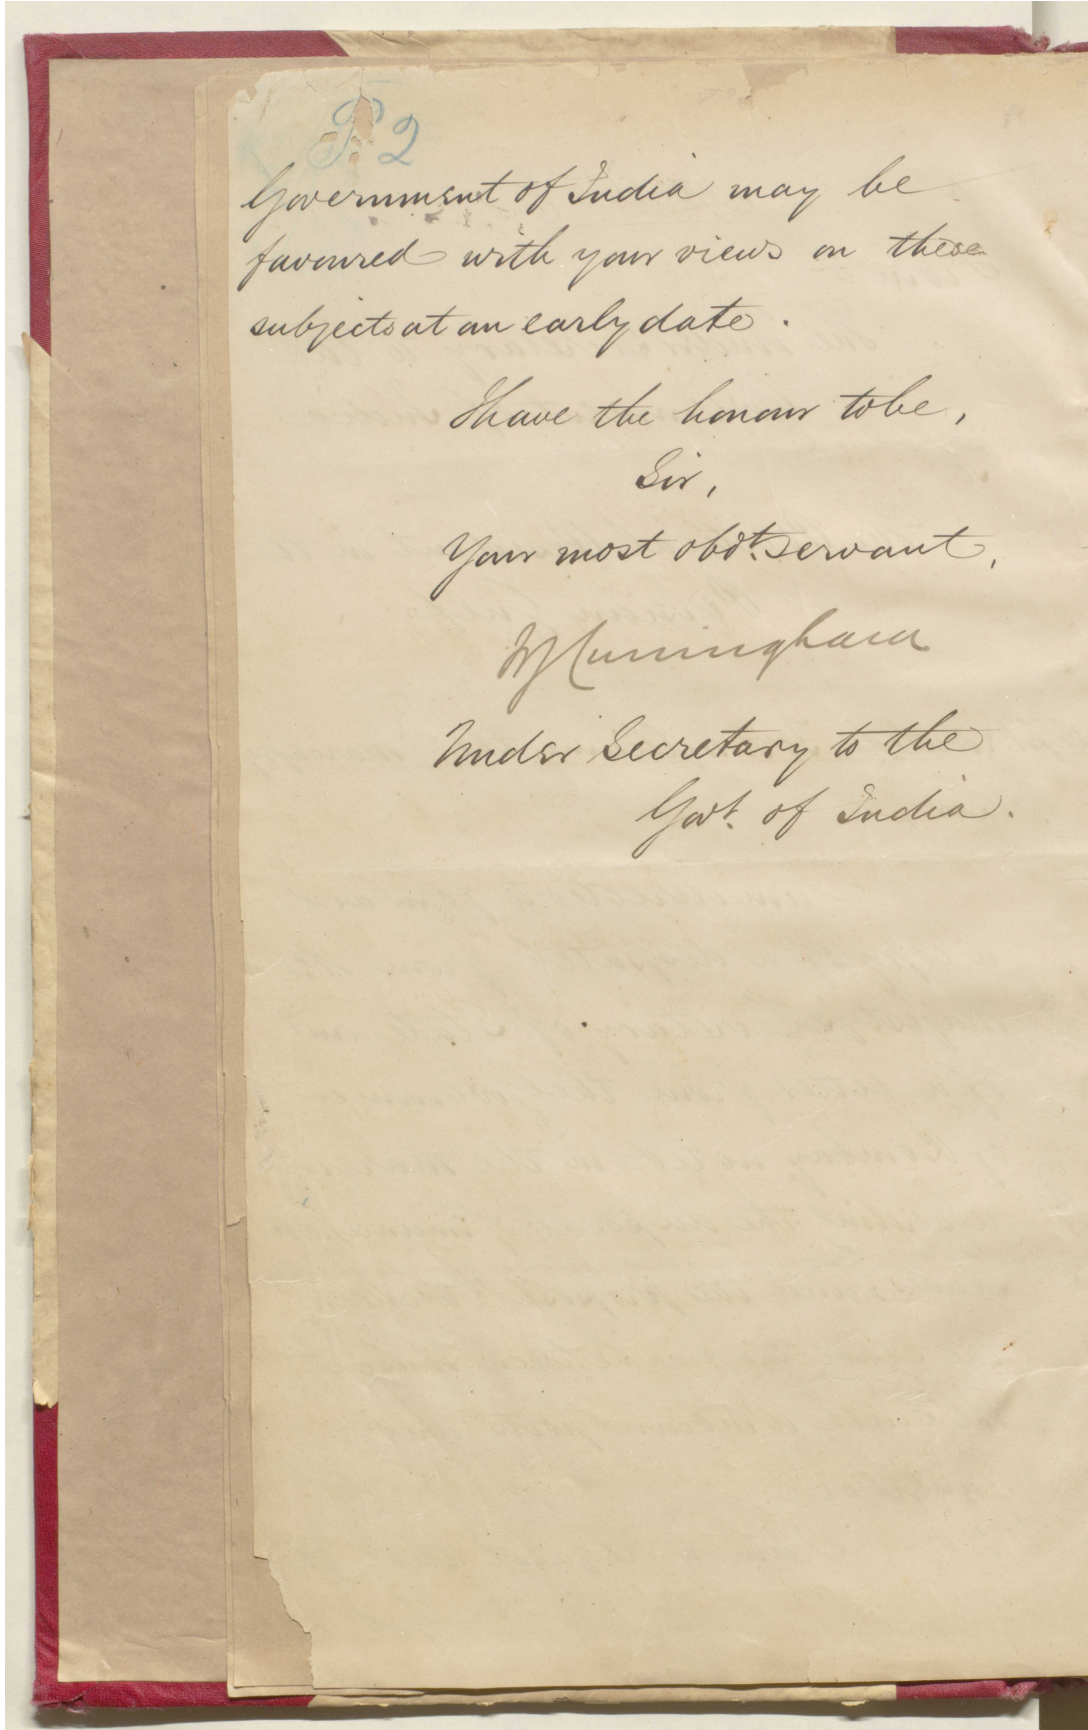 P. 2
Government of India may be
favoured with your views on these
subjects at an early date.
I have the honour to be,
Sir,
Your most obdt. servant,
WJ Cuningham
Under Secretary to the
Govt. of India.